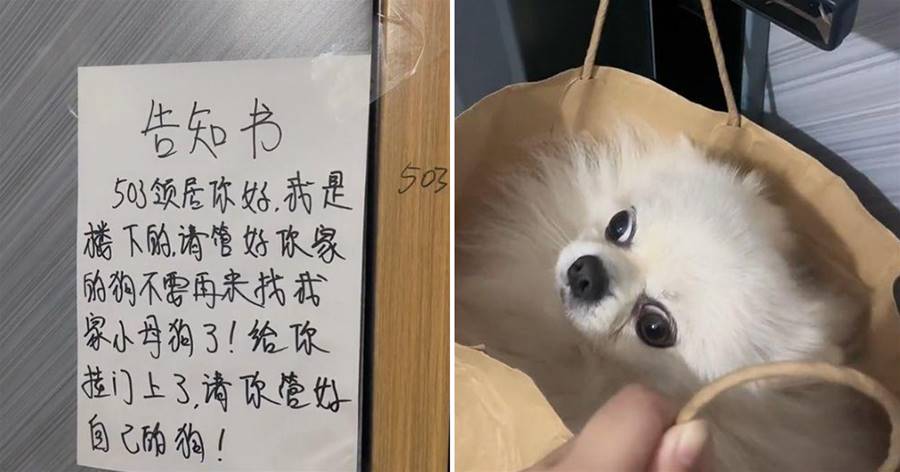 告知书
503领居你好,我是
楼下的,请管好你家
的狗不要再来找我
家小母狗了!给你
挂门上了,请你管好
自己的狗!
503